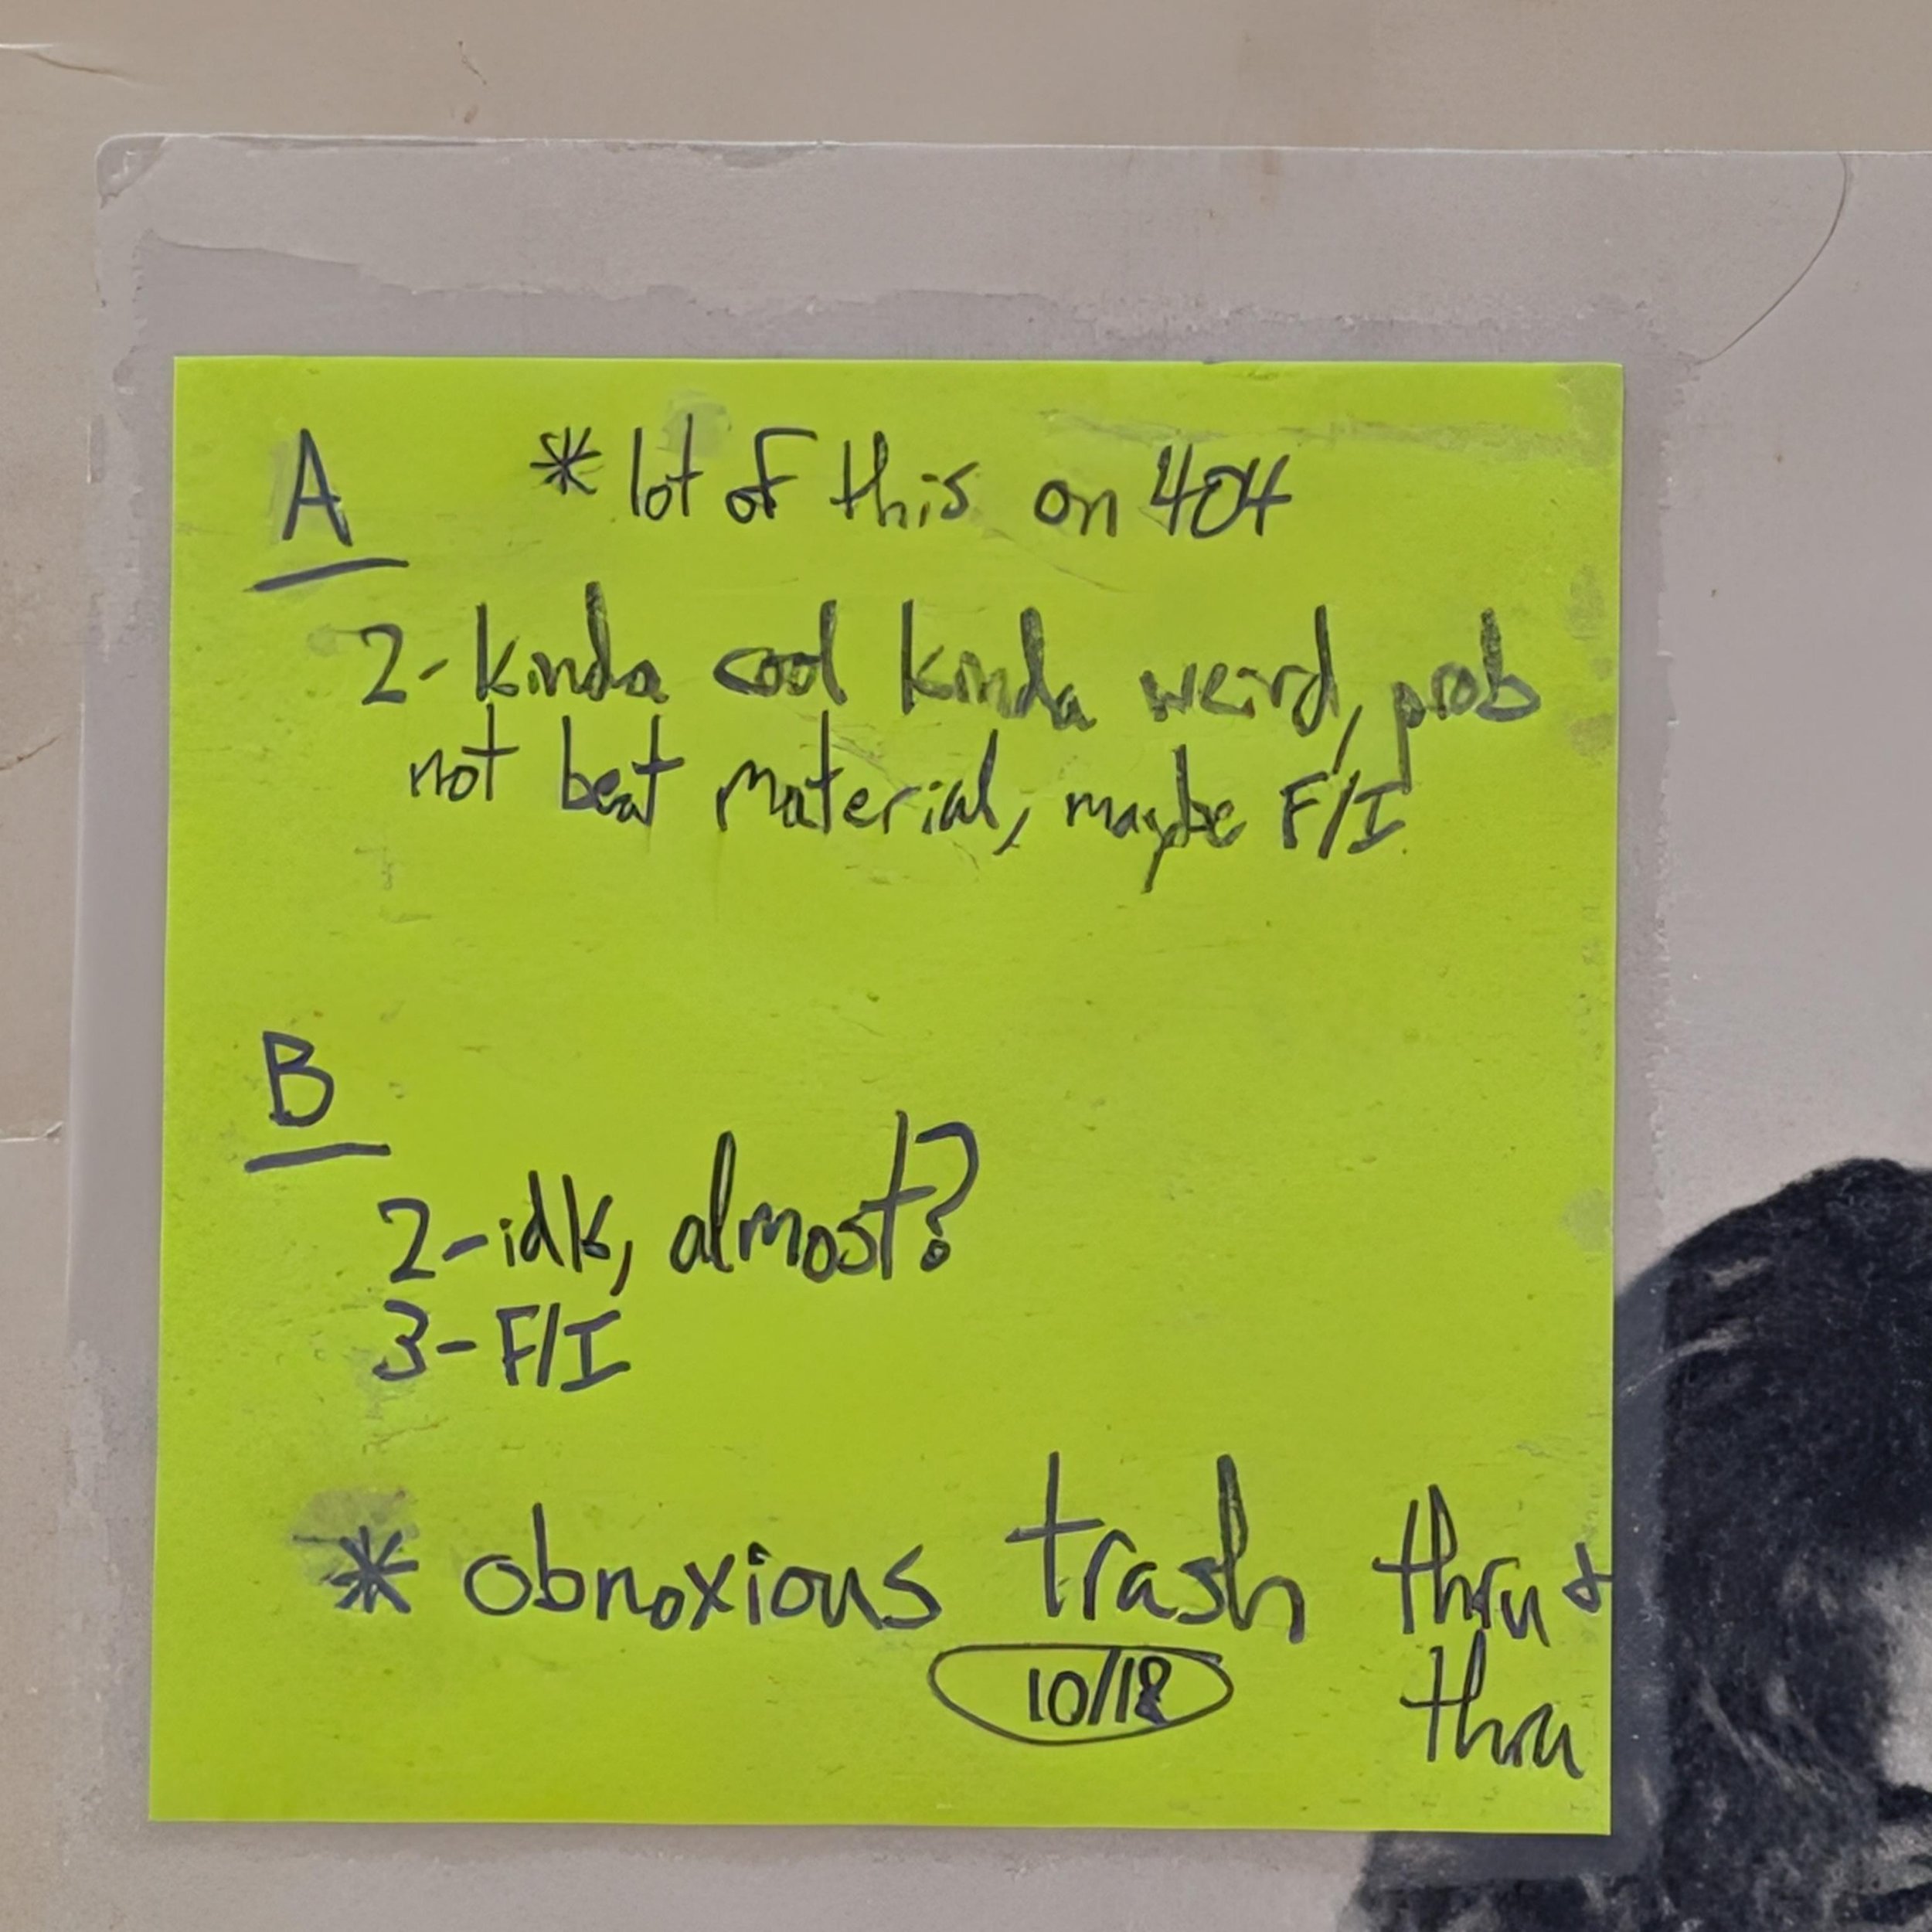 A * lot of this on 404
2- kinda cool kinda weird, prob
not beat material, maybe F/I
B
2-idk, almost?
3- F/I
* obnoxious trash thru &
thru
10/18